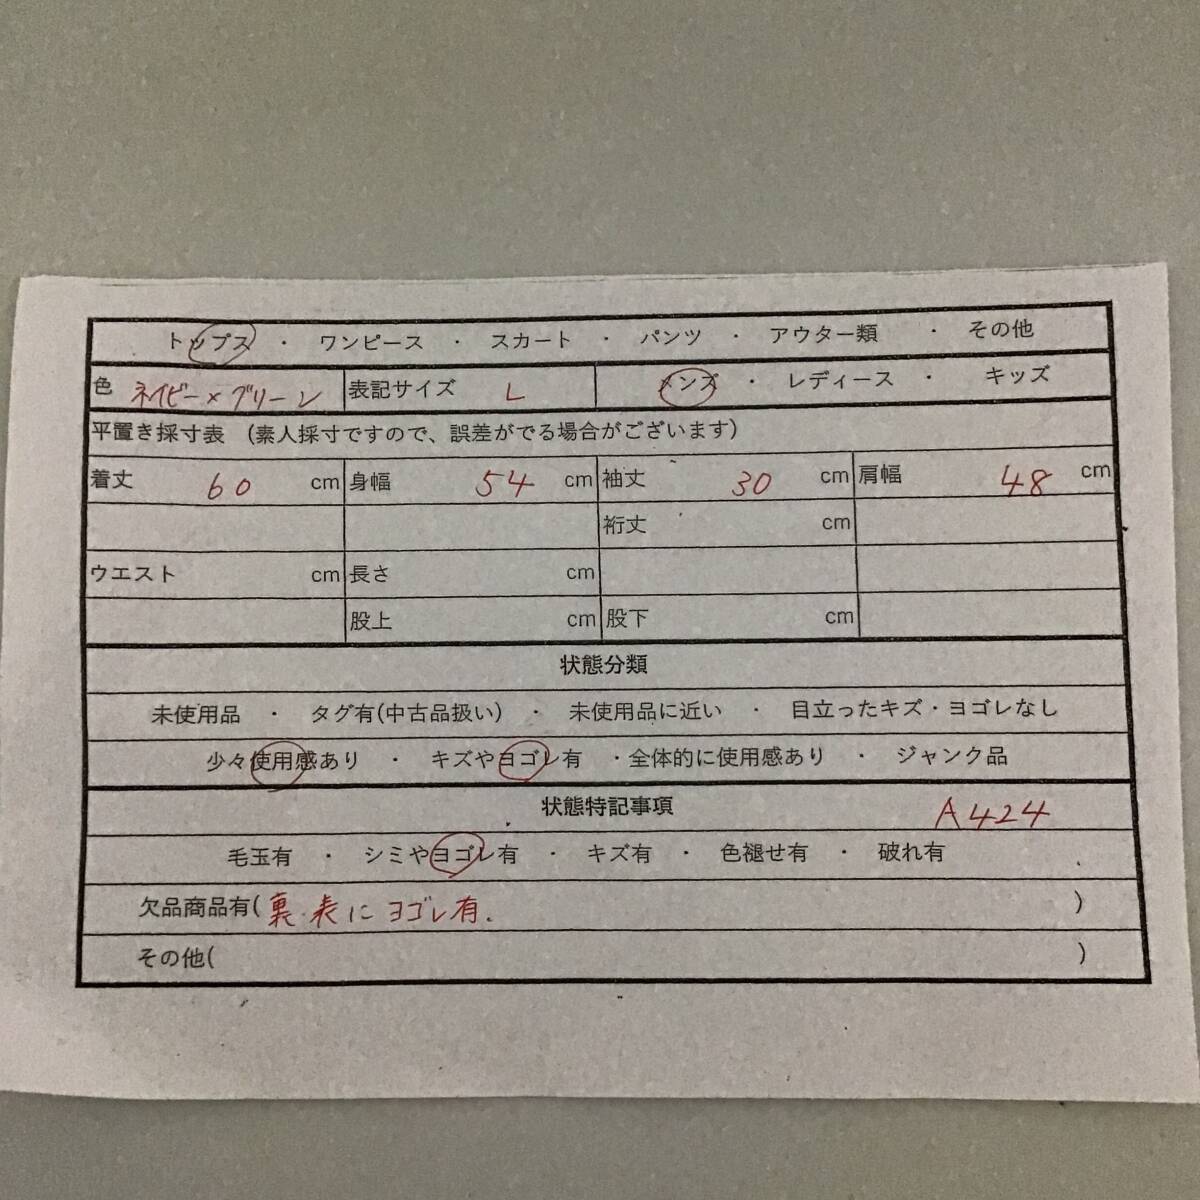 トップス ・ ワンピース ・ スカート ・ パンツ ・ アウター類 ・ その他
色 ネイビー×グリーン 表記サイズ L メンズ ・ レディース ・ キッズ
平置き採寸表 (素人採寸ですので、誤差がでる場合がございます)
着丈 60 cm 身幅 54 cm 袖丈 30 cm 肩幅 48 cm
裄丈 cm
ウエスト cm 長さ cm
股上 cm 股下 cm
状態分類
未使用品 ・ タグ有(中古品扱い) ・ 未使用品に近い ・ 目立ったキズ・ヨゴレなし
少々使用感あり ・ キズやヨゴレ有 ・全体的に使用感あり ・ ジャンク品
状態特記事項 A424
毛玉有 ・ シミやヨゴレ有 ・ キズ有 ・ 色褪せ有 ・ 破れ有
欠品商品有(裏・表にヨゴレ有. )
その他( )